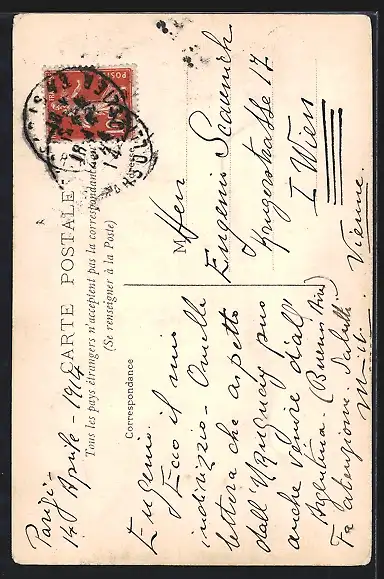 Parigi -
14 Aprile - 1914
CARTE POSTALE
Tous les pays étrangers n'acceptent pas la correspondance
(Se renseigner à la Poste)
Correspondance
Eugenio.
Ecco il mio
indirizzo -
lettera che aspetto
dall'Uruguay puo
anche venire dall'
Argentina - (Buenos Aires)
Fa attenzione. Saluti.
M
Herr
Eugenio
Krugerstrasse 17
I Wien
Vienne.
POSTES